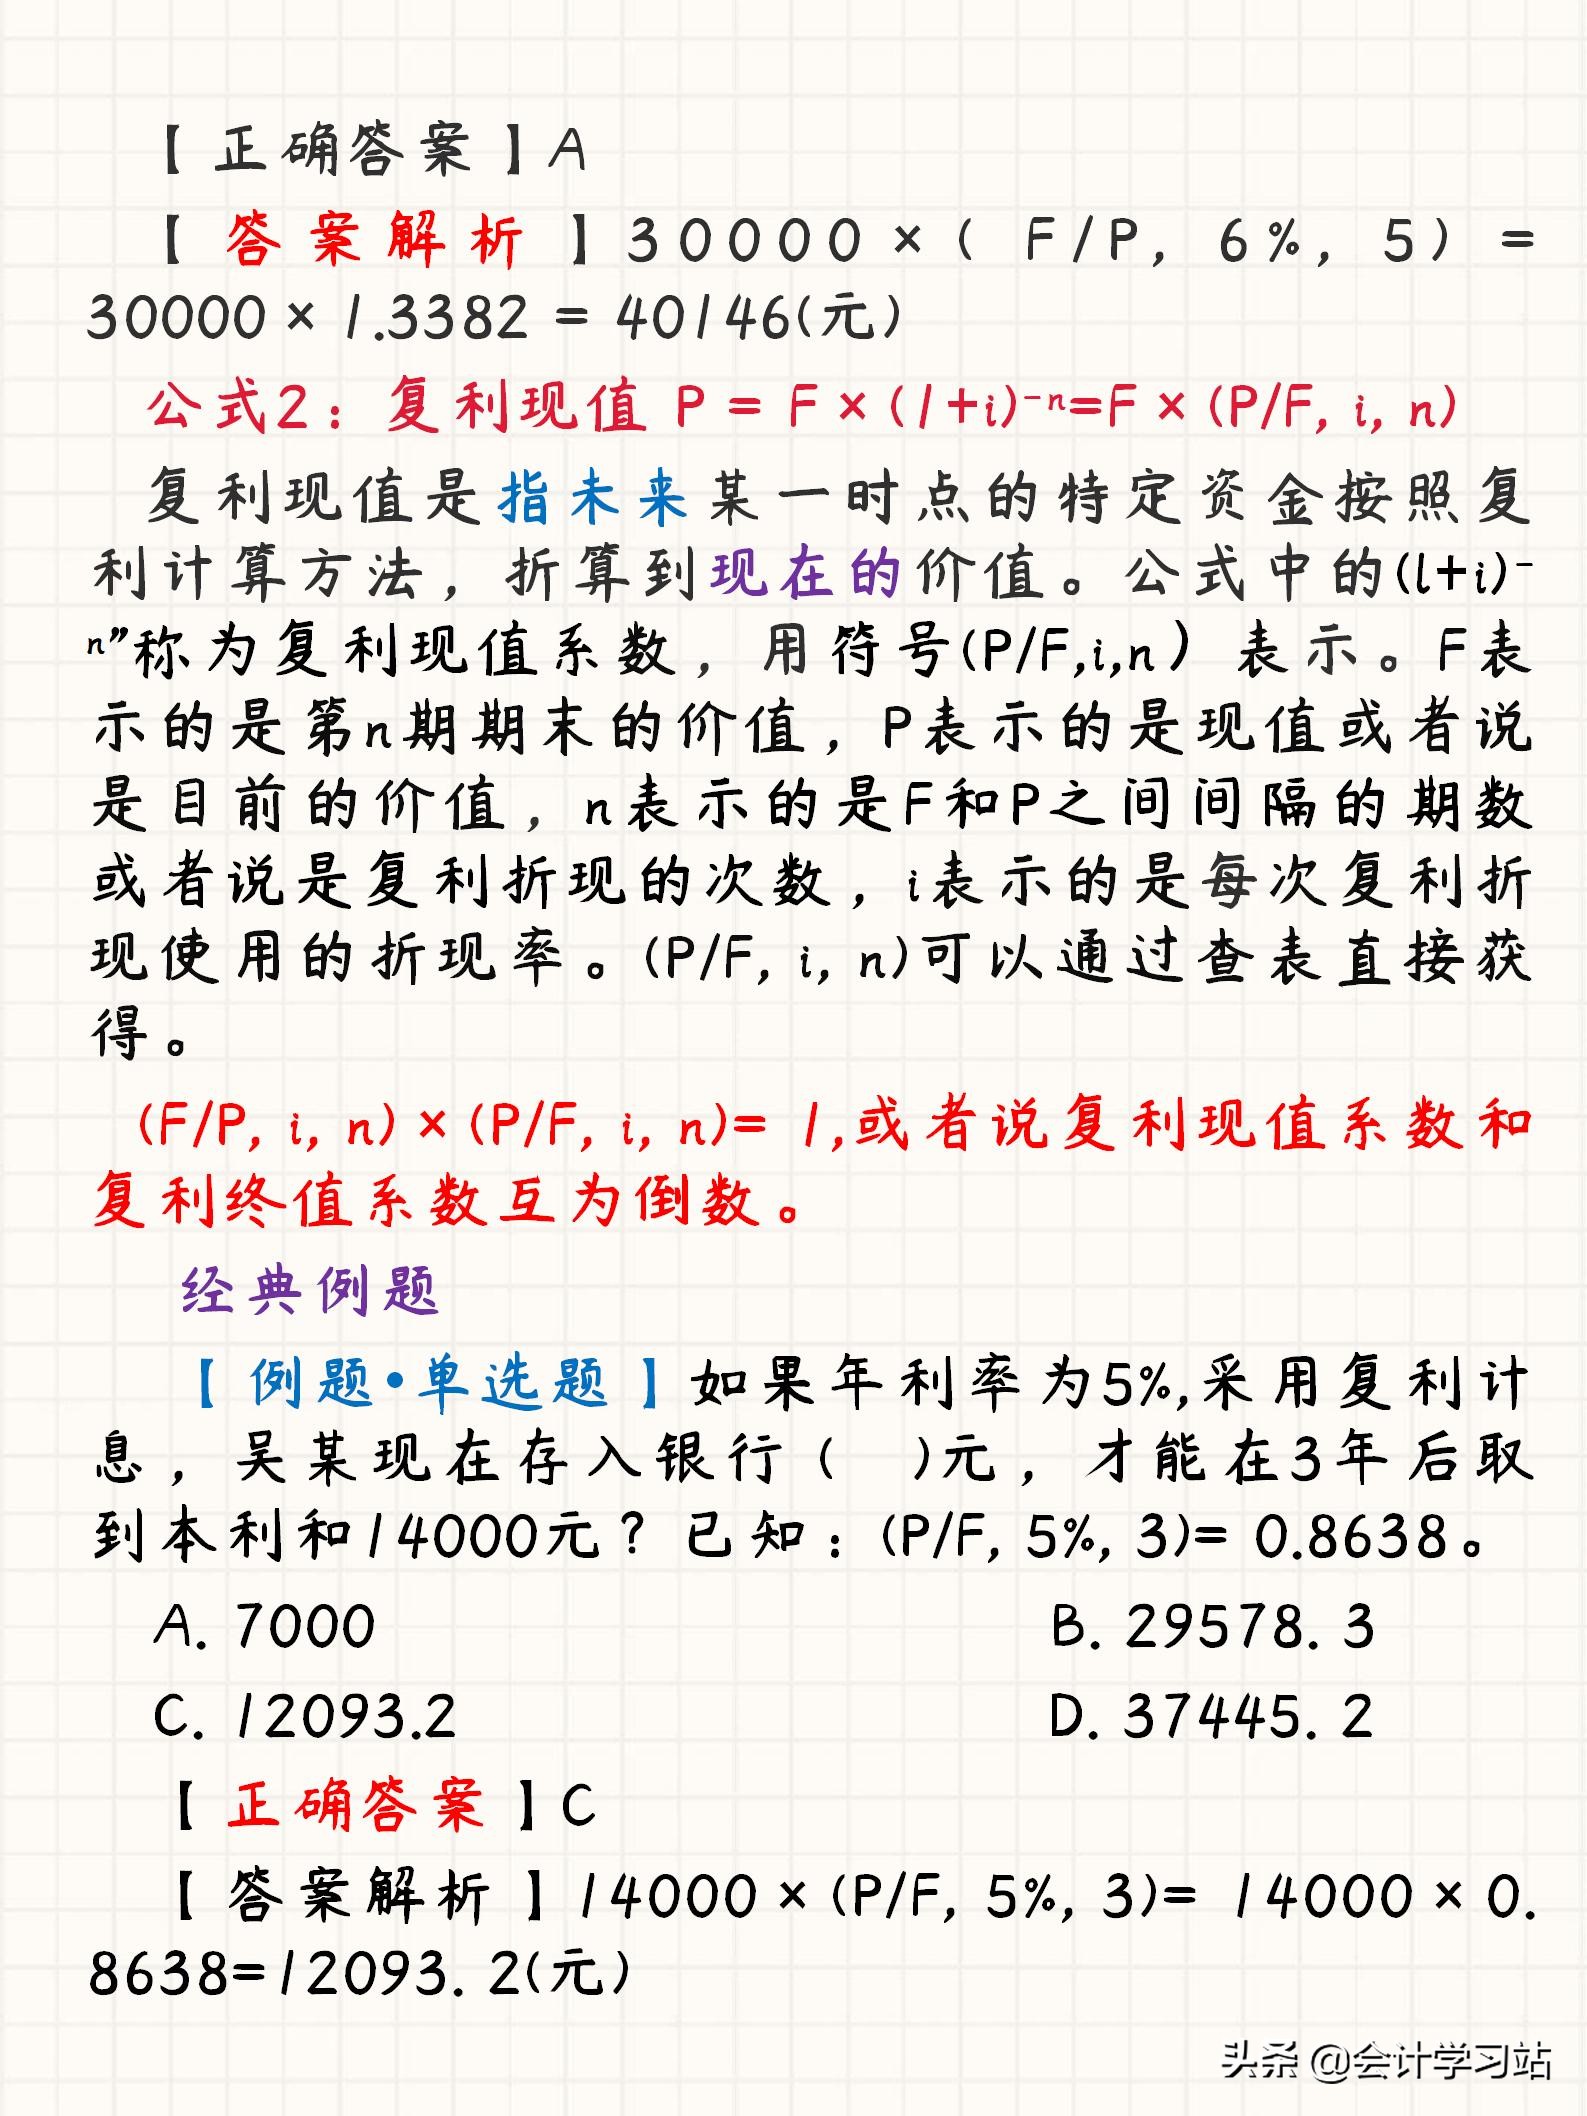 【正确答案】A
【答案解析】30000×( F/P, 6%, 5) =
30000×1.3382 = 40146(元)
公式2：复利现值 P = F×(1+i)⁻ⁿ=F×(P/F, i, n)
复利现值是指未来某一时点的特定资金按照复
利计算方法，折算到现在的价值。公式中的(l+i)⁻
ⁿ”称为复利现值系数，用符号(P/F,i,n）表示。F表
示的是第n期期末的价值，P表示的是现值或者说
是目前的价值，n表示的是F和P之间间隔的期数
或者说是复利折现的次数，i表示的是每次复利折
现使用的折现率。(P/F, i, n)可以通过查表直接获
得。
(F/P, i, n)×(P/F, i, n)= 1,或者说复利现值系数和
复利终值系数互为倒数。
经典例题
【例题•单选题】如果年利率为5%,采用复利计
息，吴某现在存入银行（ )元，才能在3年后取
到本利和14000元？已知：(P/F, 5%, 3)= 0.8638。
A. 7000 B. 29578. 3
C. 12093.2 D. 37445. 2
【正确答案】C
【答案解析】14000×(P/F, 5%, 3)= 14000×0.
8638=12093. 2(元)
头条 @会计学习站